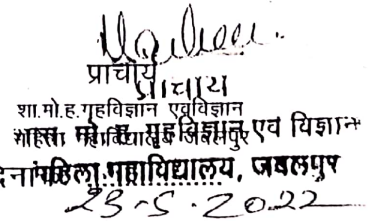 प्राचार्य
प्राचार्य
शा.मो.ह.गृहविज्ञान एवं विज्ञान
महिला महाविद्यालय जबलपुर
शास. मो. ह. गृहविज्ञान एवं विज्ञान
महिला महाविद्यालय, जबलपुर
23-5-2022